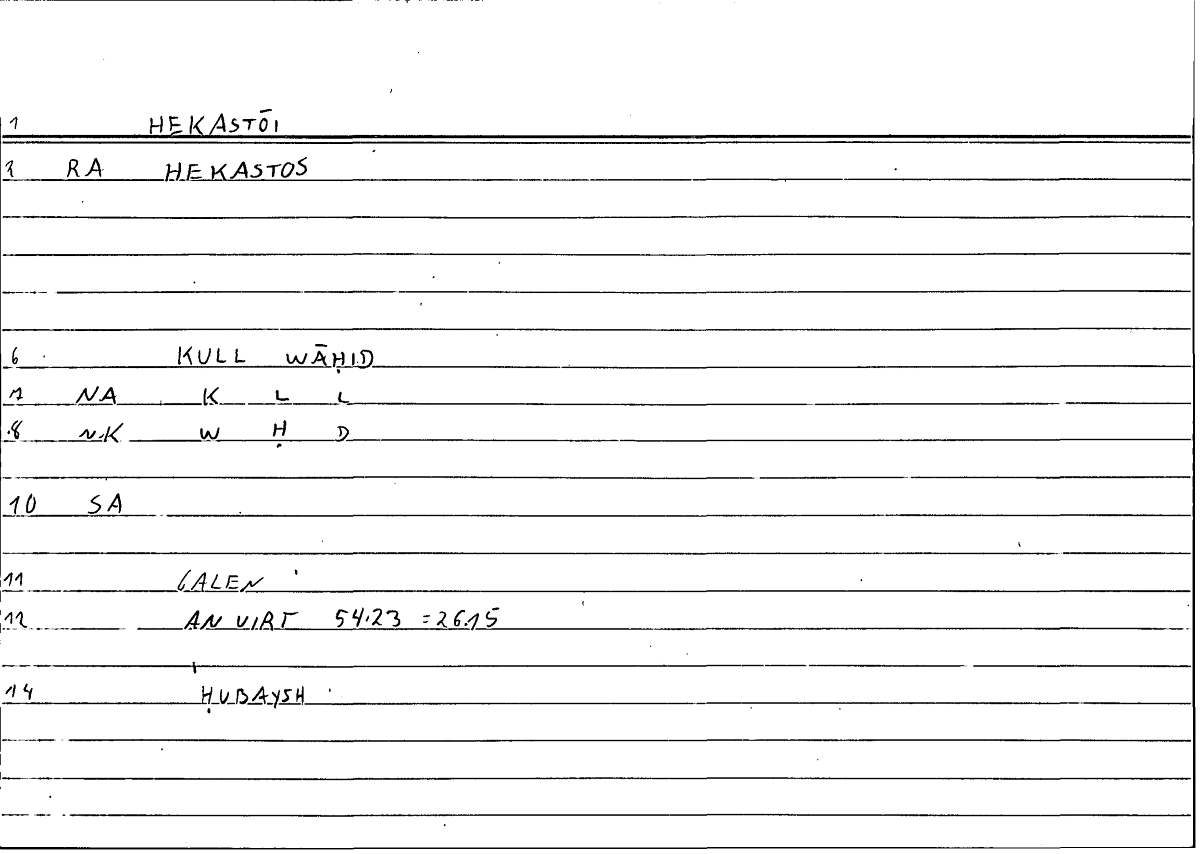 1 HEKASTŌI
2 RA HEKASTOS
6 KULL WĀḤID
7 NA K L L
8 NK W Ḥ D
10 SA
11 GALEN
12 AN VIRT 54.23 = 26.15
14 ḤUBAYSH